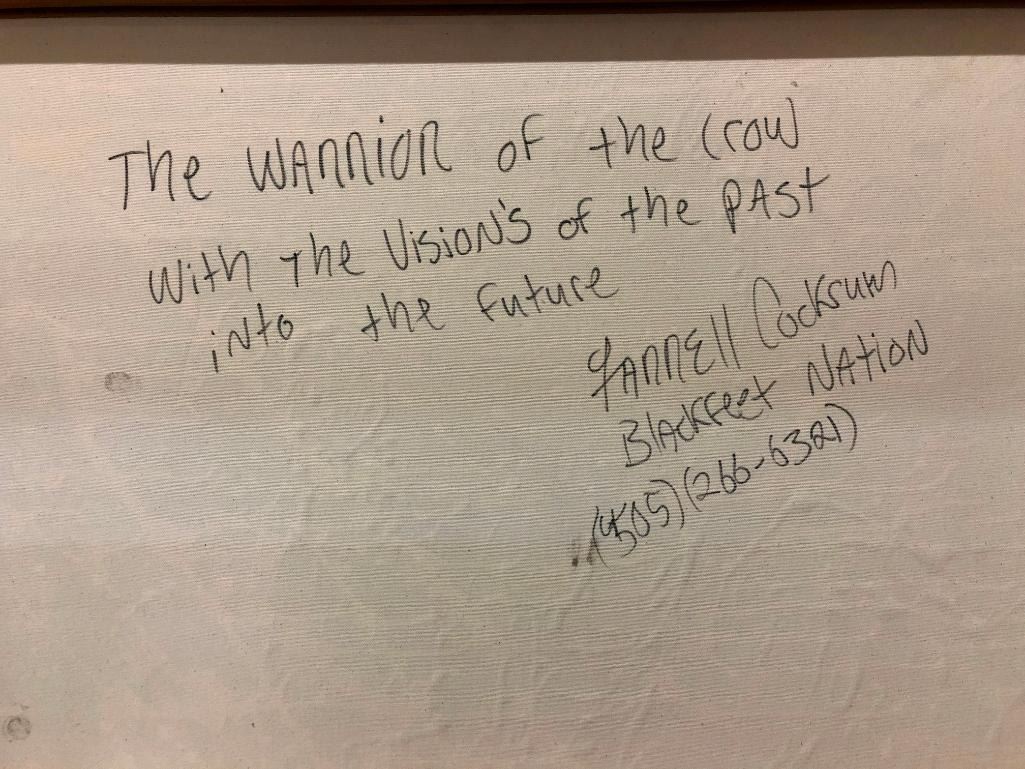 The WARRiOR of the Crow
With The Vision's of the PAST
iNto the Future
Cocksum
BlAckfeet NATiON
(505)(266-6321)